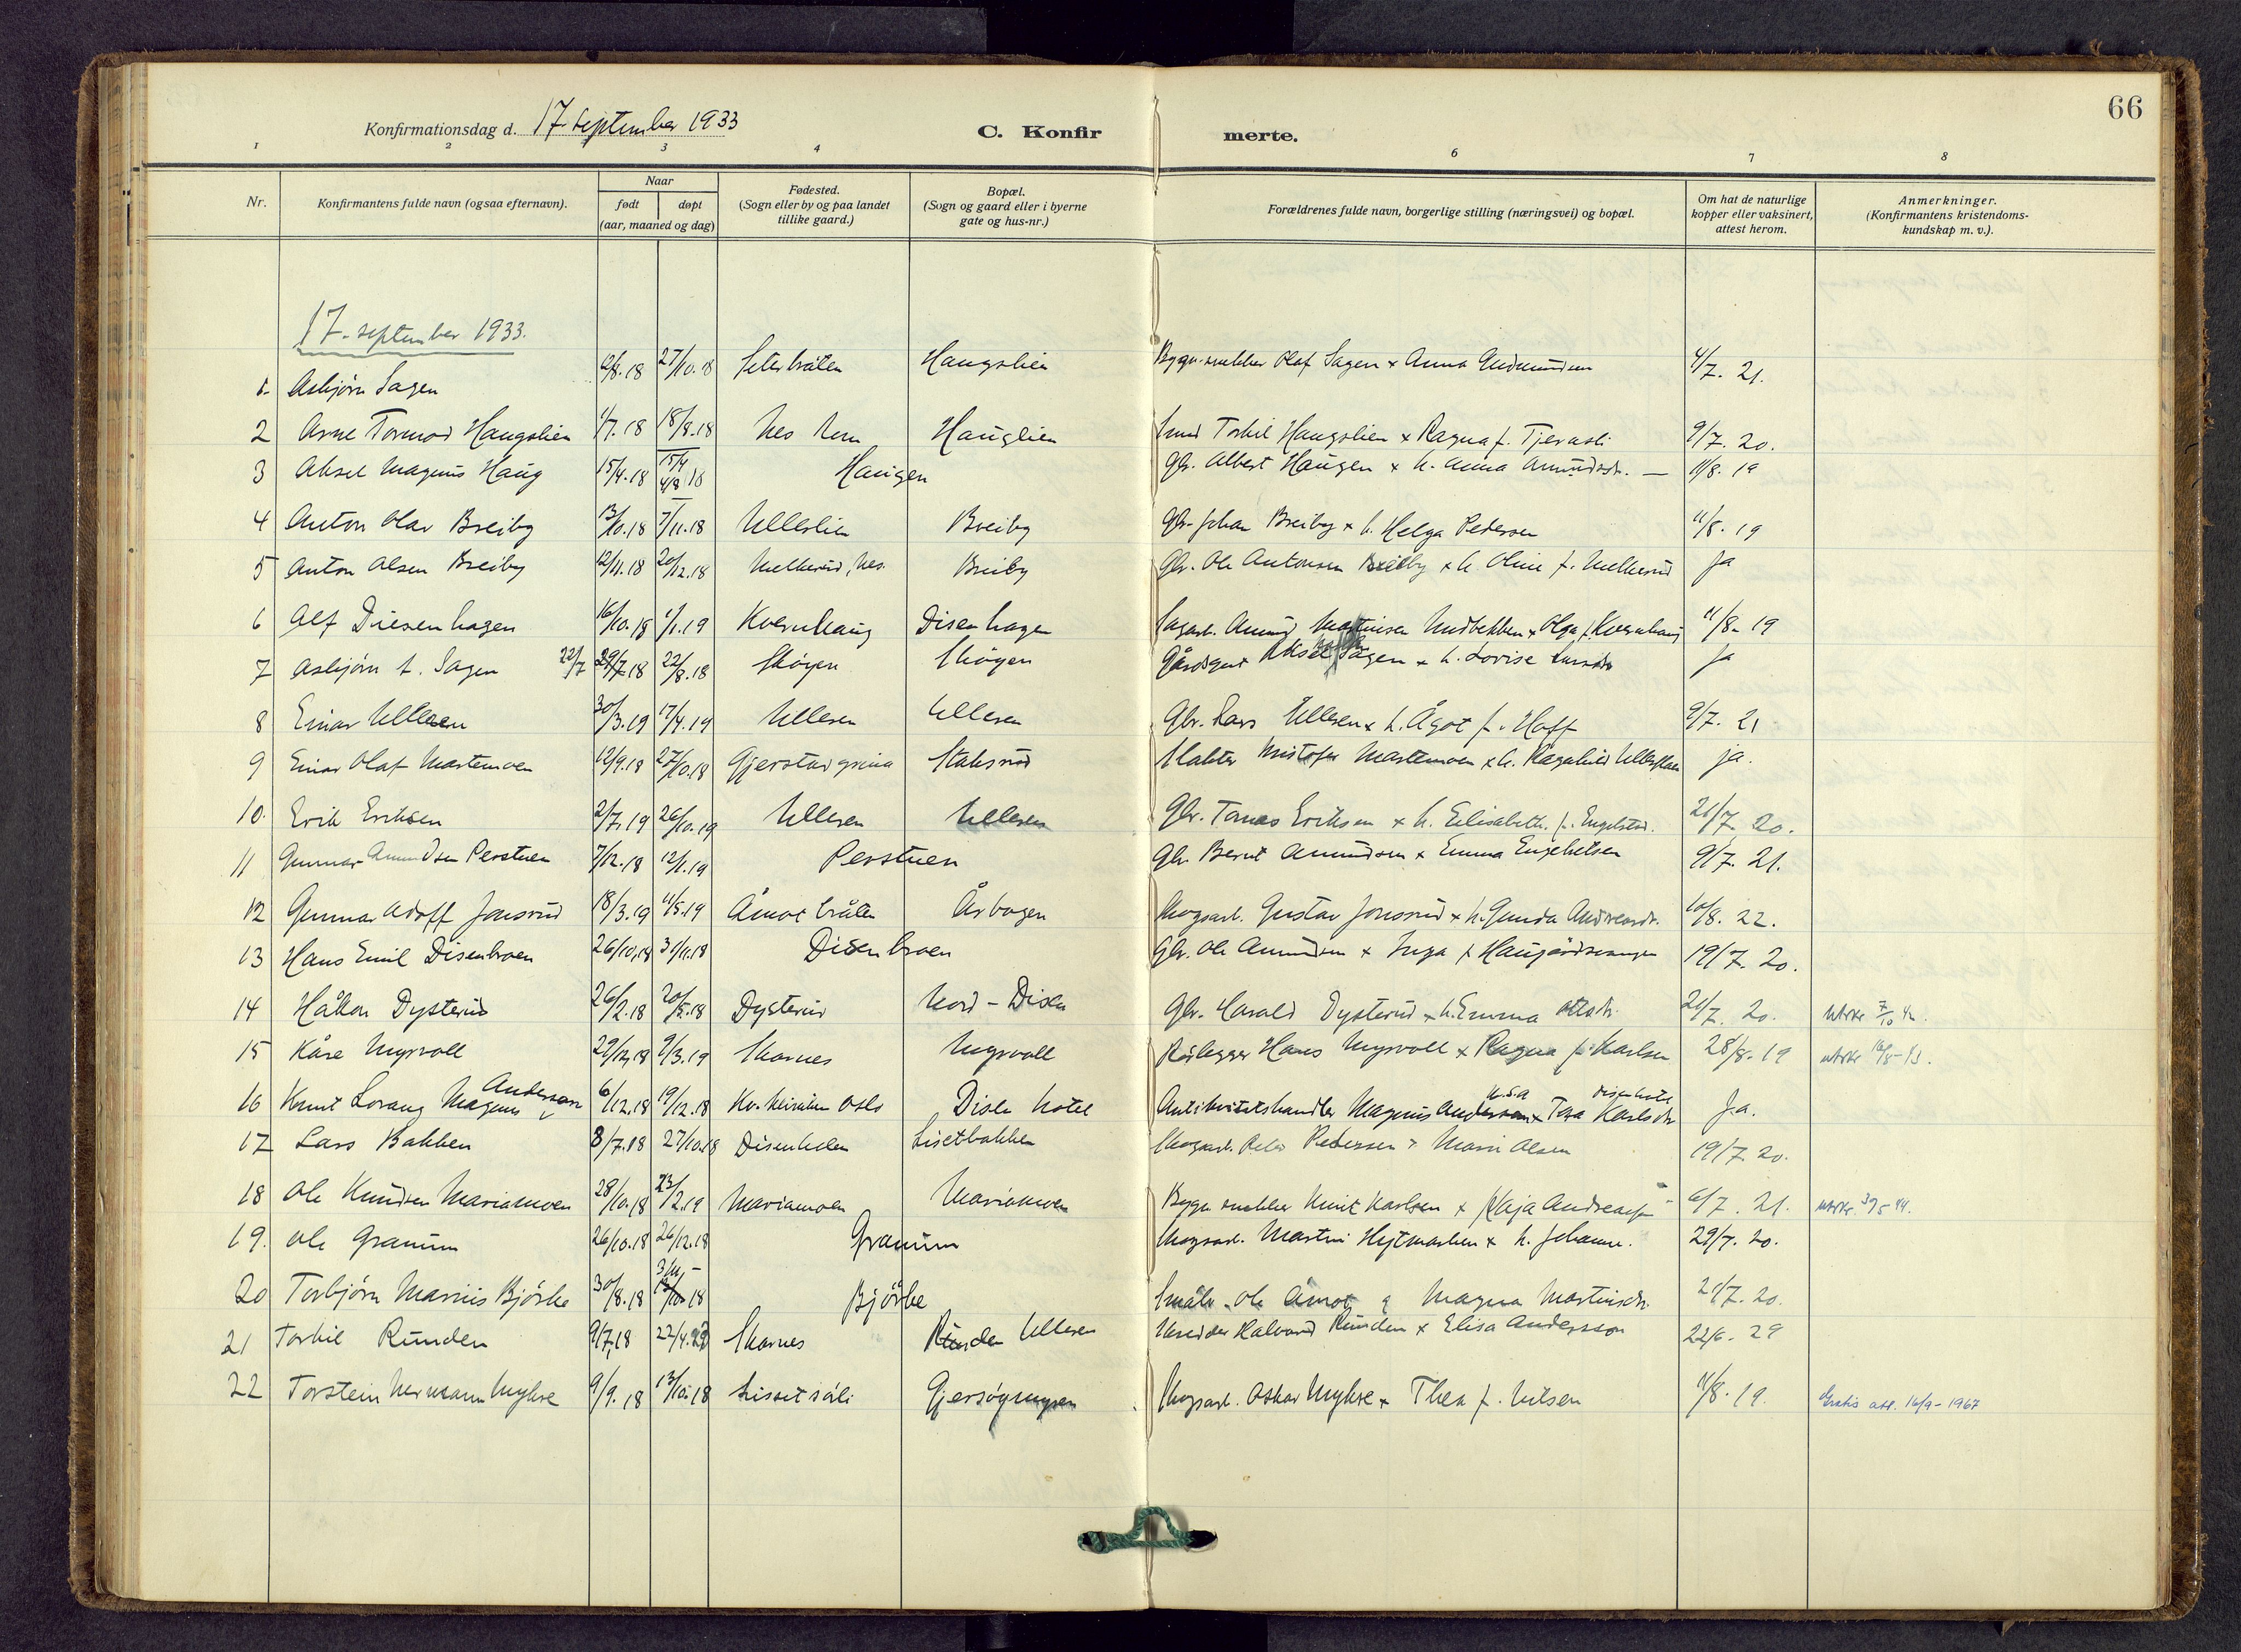 66
Konfirmationsdag d. 17. september 1933
C. Konfir merte.
1 2 3 4 6 7 8
Nr. Konfirmantens fulde navn (ogsaa efternavn). Naar født døpt (aar, maaned og dag) Fødested. (Sogn eller by og paa landet tillike gaard.) Bopæl. (Sogn og gaard eller i byerne gate og hus-nr.) Forældrenes fulde navn, borgerlige stilling (næringsvei) og bopæl. Om hat de naturlige kopper eller vaksinert, attest herom. Anmerkninger. (Konfirmantens kristendoms-kundskap m. v.).
17. september 1933.
1. Asbjørn Sagen 12/8.18 27/10.18 Seterbråten Haugslien Olaf Sagen x Anna Gudmundsen 4/7. 21.
2 Arne Tormod Haugslien 1/7.18 18/8.18 Nes Hauglien Smed Torkil Haugslien x Ragna f. 9/7. 20.
3 Aksel Magnus Haug 15/4.18 Haugen Gbr. Albert Haugen x h. Anna Amundsdr. — 11/8. 19
4 Anton Olav Breiby 13/10.18 7/11.18 Ullerlien Breiby Gbr. Johan Breiby x h. Helga Pedersen 11/8. 19
5 Anton Olsen Breiby 12/11.18 20/12.18 Nes. Breiby Gbr. Ole Antonsen Breiby x h Oline f. ja
6 Alf Disenhagen 16/10.18 1/1.19 Kvernhaug Disenhagen Sagarb. Amund Martinsen x Olga f. Kvernhaug 11/8- 19
7 Asbjørn A. Sagen 22/7 29/7.18 22/8.18 Skøyen Skøyen Aksel Sagen x h. Lovise ja
8 Einar Ullesen 30/3.19 17/4.19 Ulleren Ulleren Gbr. Lars Ulleren x h. Ågot f. Hoff 9/7. 21
9 Einar Olaf Martemoen 12/9.18 27/10.18 Gjerstadgrina Slakter Kristofer Martemoen x h. Ragnhild ja.
10. Erik Eriksen 2/7.19 26/10.19 Ulleren Ulleren Gbr. Eriksen x h. Elisabeth f. Engelstad. 21/7. 20.
11 Gunnar Amundsen Perstuen 7/12.18 12/1.19 Perstuen Gbr. Bernt Amundsen x Emma Engebretsen 9/7. 21.
12 Gunnar Adolf Jonsrud 18/3.19 4/5.19 Åmotbråten Årbogen Skogsarb. Gustav Jonsrud x h. Gunda Andreasdr. 10/8. 22.
13 Hans Emil Disenbroen 26/10.18 Disenbroen Gbr. Ole Amundsen x Inga f. 19/7. 20.
14 Håkon Dysterud 26/2.18 20/5.18 Dysterud Nord-Disen Gbr. Harald Dysterud x h. Emma 21/7. 20.
15 Kåre Myrvoll 29/12.18 9/3.19 Skarnes Myrvoll Rørlegger Hans Myrvoll x Ragna f. Karlsen 28/8. 19
16 Knut Magnus Andersson 6/12.18 19/12.18 Oslo Disen hotel Antikvitetshandler Magnus Andersson U.S.A x Tea Karlsdr Disen hotel Ja.
17 Lars Bakken 8/7.18 27/10.18 Disenheden Lisetbakken Skogsarb. Pedersen x Marn Olsen 19/7. 20.
18 Ole Knudsen Mariamoen 28/10.18 23/2.19 Mariamoen Mariamoen Bygn. snekker Knut Karlsen x Kaja 6/7. 21.
19. Ole Granum 26/10.18 26/12.18 Granum Skogsarb. Martin x h. Johanne. 29/7. 20.
20 Torbjørn Marius Bjørke 30/8.18 3/11 – Bjørke Småbr. Ole Åmot Magna Martinsdr. 21/7. 20.
21 Torkil Runden 9/7.18 Skarnes Runden Ulleren Halvard Runden x Elisa Andersson 22/6. 29
22 Torstein Hermann Myhre 9/9.18 13/10.18 Skogsarb. Oskar Myhre x Thea f. Nilsen 11/8. 19. Gratis att. 16/9-1967